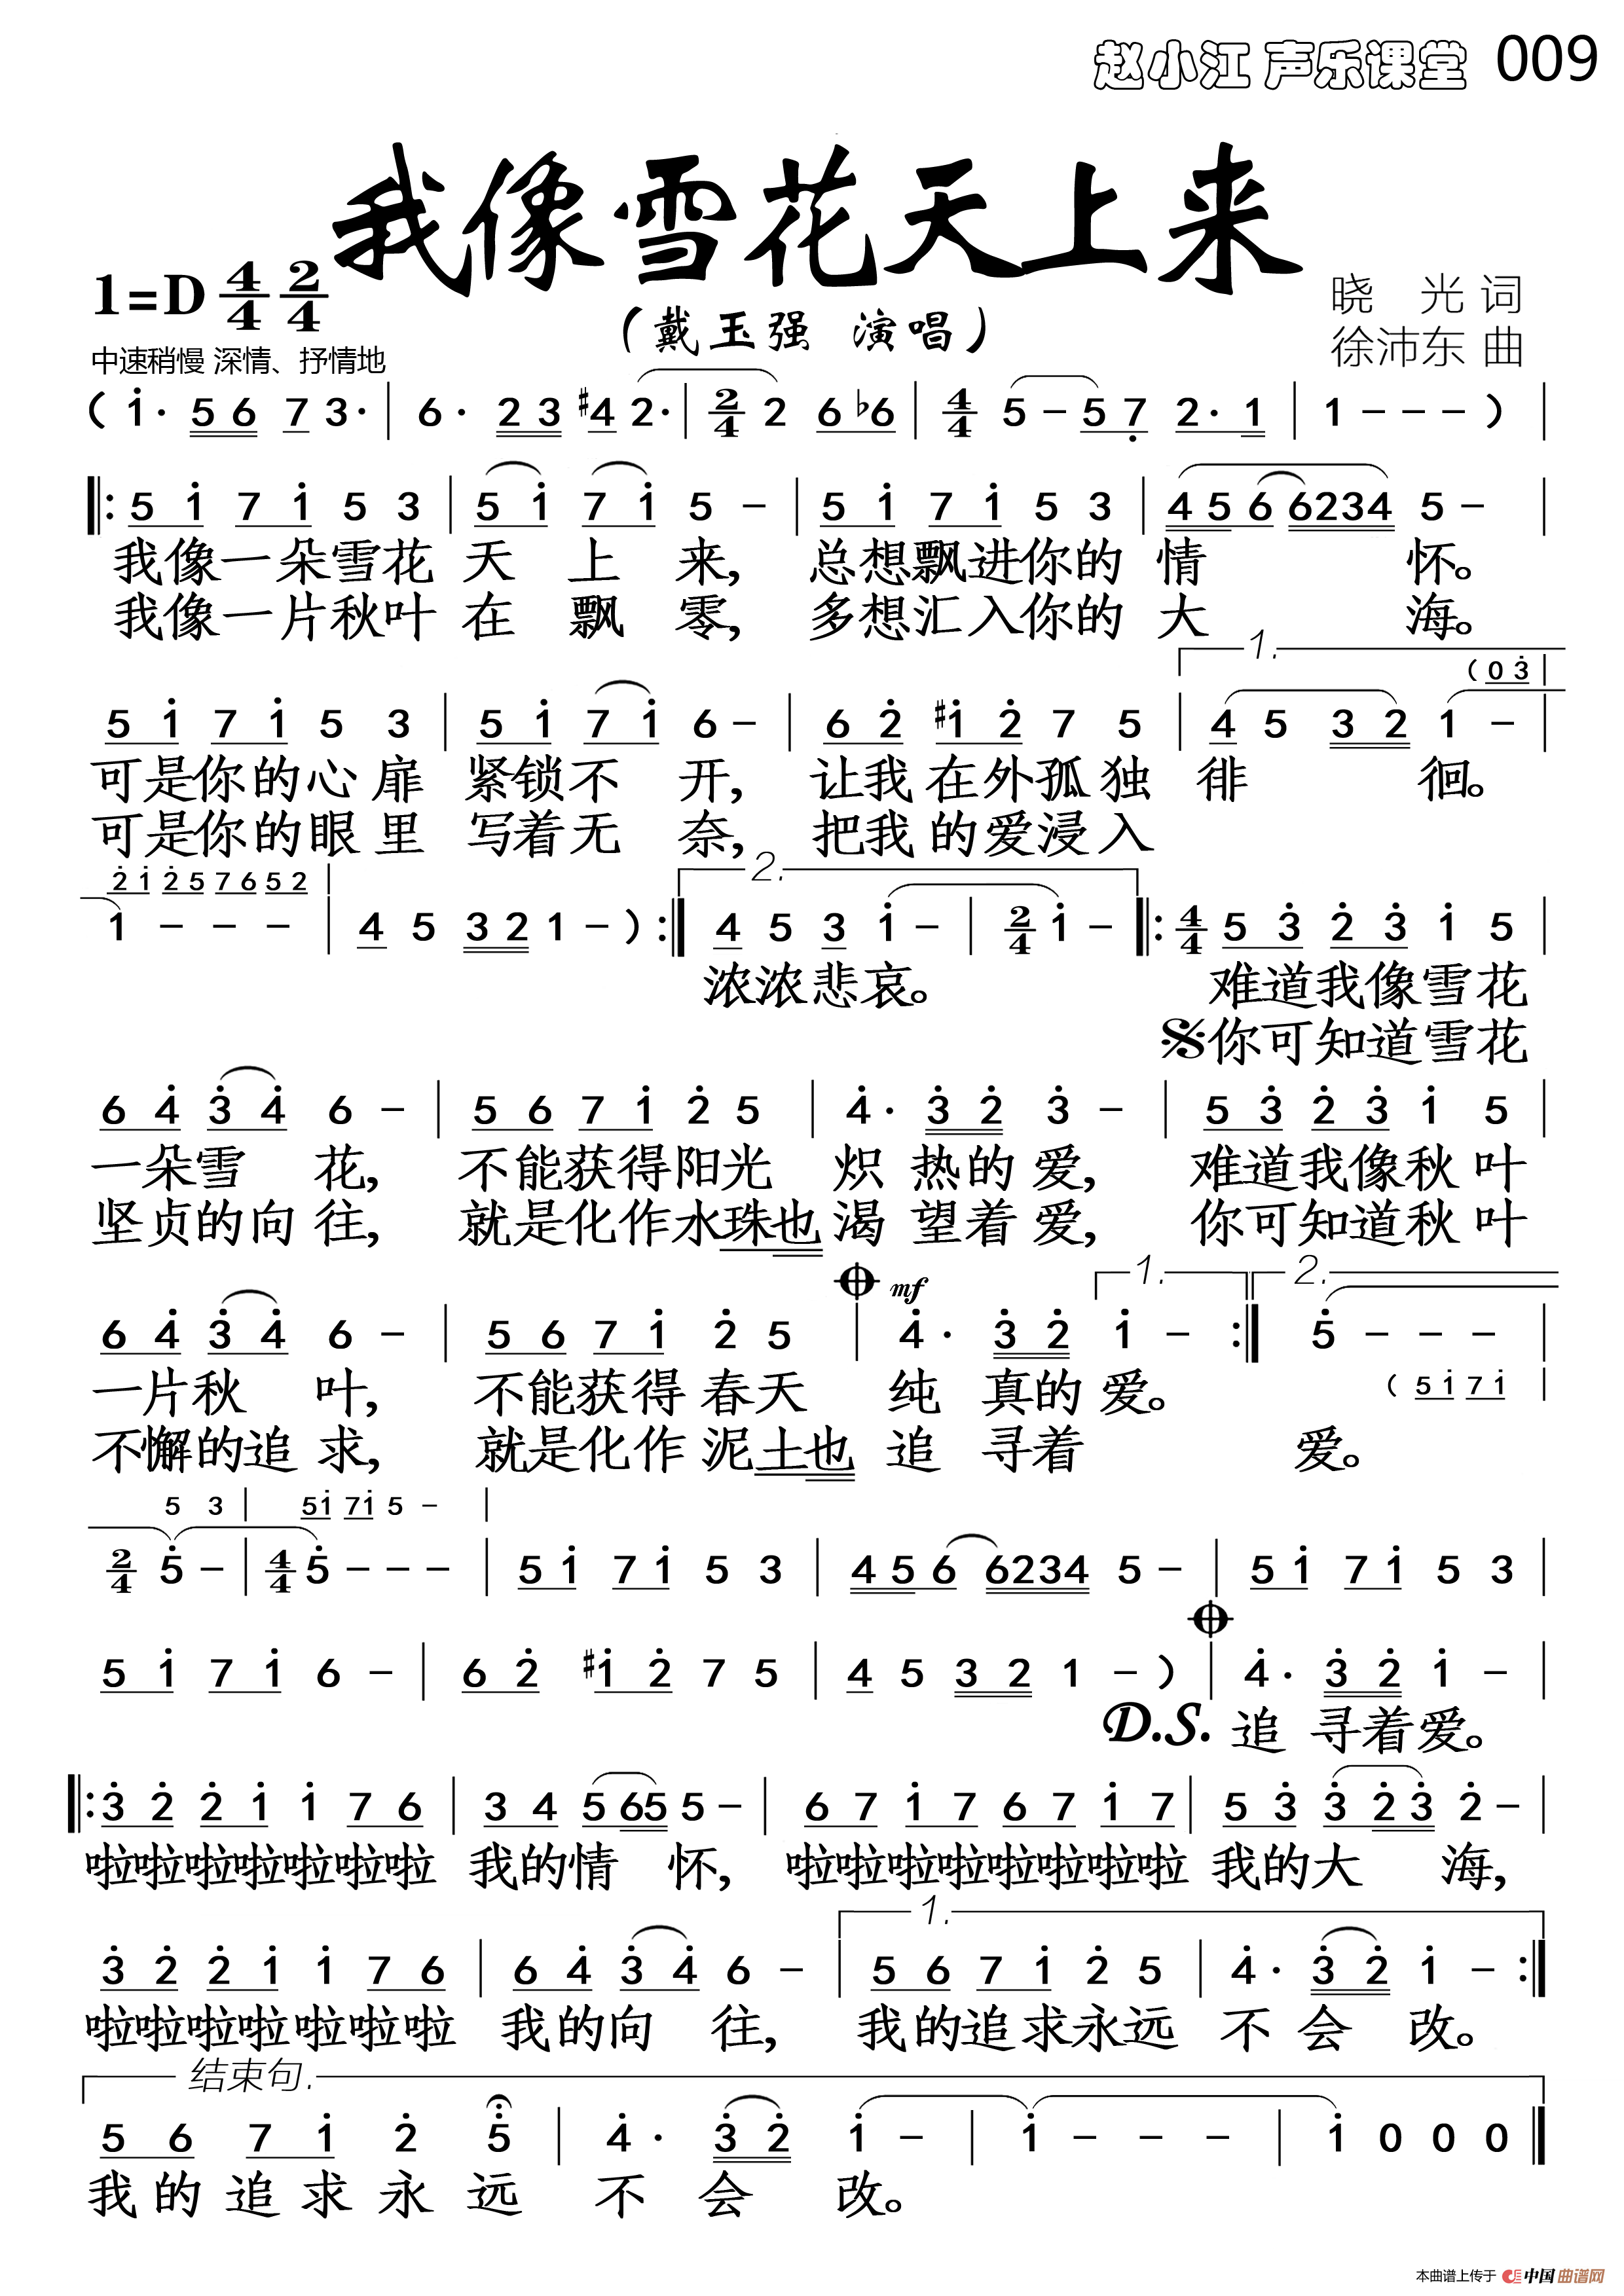 赵小江 声乐课堂 009
我像雪花天上来
1=D 4/4 2/4
（戴玉强 演唱）
晓 光 词
徐沛东 曲
中速稍慢 深情、抒情地
( i· 5 6 7 3· | 6· 2 3 #4 2· | 2/4 2 6 b6 | 4/4 5 – 5 7 2· 1 | 1 – – – ) |
‖: 5 i 7 i 5 3 | 5 i 7 i 5 – | 5 i 7 i 5 3 | 4 5 6 6234 5 – |
我像一朵雪花 天 上 来, 总想飘进你的 情 怀。
我像一片秋叶 在 飘 零, 多想汇入你的 大 海。
1.
( 0 3 |
5 i 7 i 5 3 | 5 i 7 i 6 – | 6 2 #i 2 7 5 | 4 5 3 2 1 – |
可是你的心 扉 紧锁不 开, 让我在外孤独 徘 徊。
可是你的眼 里 写着无 奈, 把我的爱浸入
2 i 2 5 7 6 5 2 | 2.
1 – – – | 4 5 3 2 1 – ) :‖ 4 5 3 i – | 2/4 i – ‖: 4/4 5 3 2 3 i 5 |
浓浓悲哀。 难道我像雪花
𝄋你可知道雪花
6 4 3 4 6 – | 5 6 7 i 2 5 | 4· 3 2 3 – | 5 3 2 3 i 5 |
一朵雪 花, 不能获得阳光 炽 热的 爱, 难道我像秋 叶
坚贞的向 往, 就是化作水珠也 渴 望着 爱, 你可知道秋 叶
𝄌 mf 1. 2.
6 4 3 4 6 – | 5 6 7 i 2 5 | 4· 3 2 i – :‖ 5 – – – |
一片秋 叶, 不能获得 春天 纯 真的 爱。 ( 5 i 7 i |
不懈的追 求, 就是化作 泥土也 追 寻着 爱。
5 3 | 5i 7i 5 – |
2/4 5 – | 4/4 5 – – – | 5 i 7 i 5 3 | 4 5 6 6234 5 – | 5 i 7 i 5 3 |
𝄌
5 i 7 i 6 – | 6 2 #i 2 7 5 | 4 5 3 2 1 – ) | 4· 3 2 i – |
D.S. 追 寻着爱。
‖: 3 2 2 i i 7 6 | 3 4 5 65 5 – | 6 7 i 7 6 7 i 7 | 5 3 3 2 3 2 – |
啦啦啦啦啦啦啦 我的情 怀, 啦啦啦啦啦啦啦啦 我的大 海,
1.
3 2 2 i i 7 6 | 6 4 3 4 6 – | 5 6 7 i 2 5 | 4· 3 2 i – :‖
啦啦啦啦啦啦啦 我的向 往, 我的追求永远 不 会 改。
结束句.
5 6 7 i 2 5 | 4· 3 2 i – | i – – – | i 0 0 0 ‖
我 的 追 求 永 远 不 会 改。
本曲谱上传于 中国曲谱网